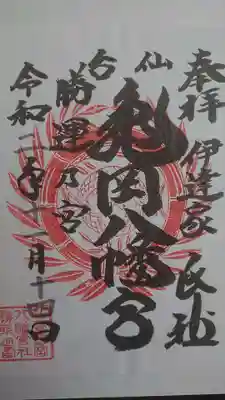 奉拝
伊達家
氏社
仙台
亀岡八幡宮
勝運乃宮
令和二年十一月十四日